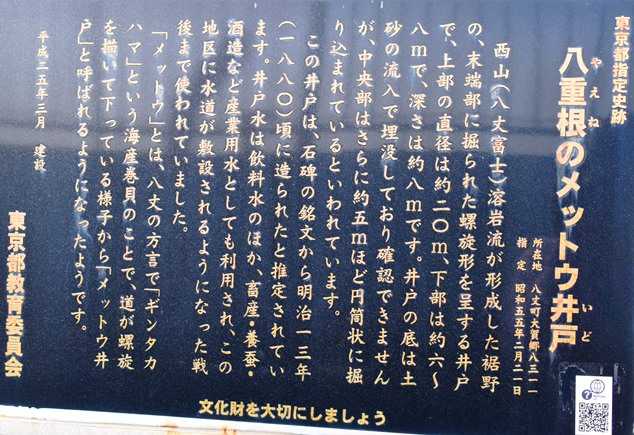 東京都指定史跡
八重根のメットウ井戸
やえね
いど
所在地 八丈町大賀郷八三一一
指定 昭和五五年二月二一日
西山(八丈富士)溶岩流が形成した裾野
の、末端部に掘られた螺旋形を呈する井戸
で、上部の直径は約二〇m、下部は約六〜
八mで、深さは約八mです。井戸の底は土
砂の流入で埋没しており確認できません
が、中央部はさらに約五mほど円筒状に掘
り込まれているといわれています。
この井戸は、石碑の銘文から明治一三年
(一八八〇)頃に造られたと推定されてい
ます。井戸水は飲料水のほか、畜産・養蚕・
酒造など産業用水としても利用され、この
地区に水道が敷設されるようになった戦
後まで使われていました。
「メットウ」とは、八丈の方言で「ギンタカ
ハマ」という海産巻貝のことで、道が螺旋
を描いて下っている様子から「メットウ井
戸」と呼ばれるようになったようです。
平成二五年三月 建設
東京都教育委員会
文化財を大切にしましょう